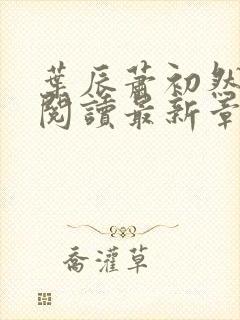 葉辰蕭初然
閱讀最新章
喬灌草